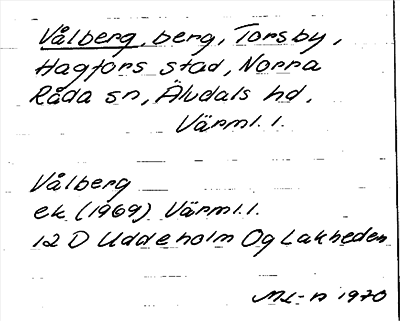 Vålberg, berg, Torsby,
Hagfors stad, Norra
Råda sn, Äludals hd,
Värml. l.
Vålberg
ek. (1969) Värml. l.
12 D Uddeholm Og Lakheden
1970